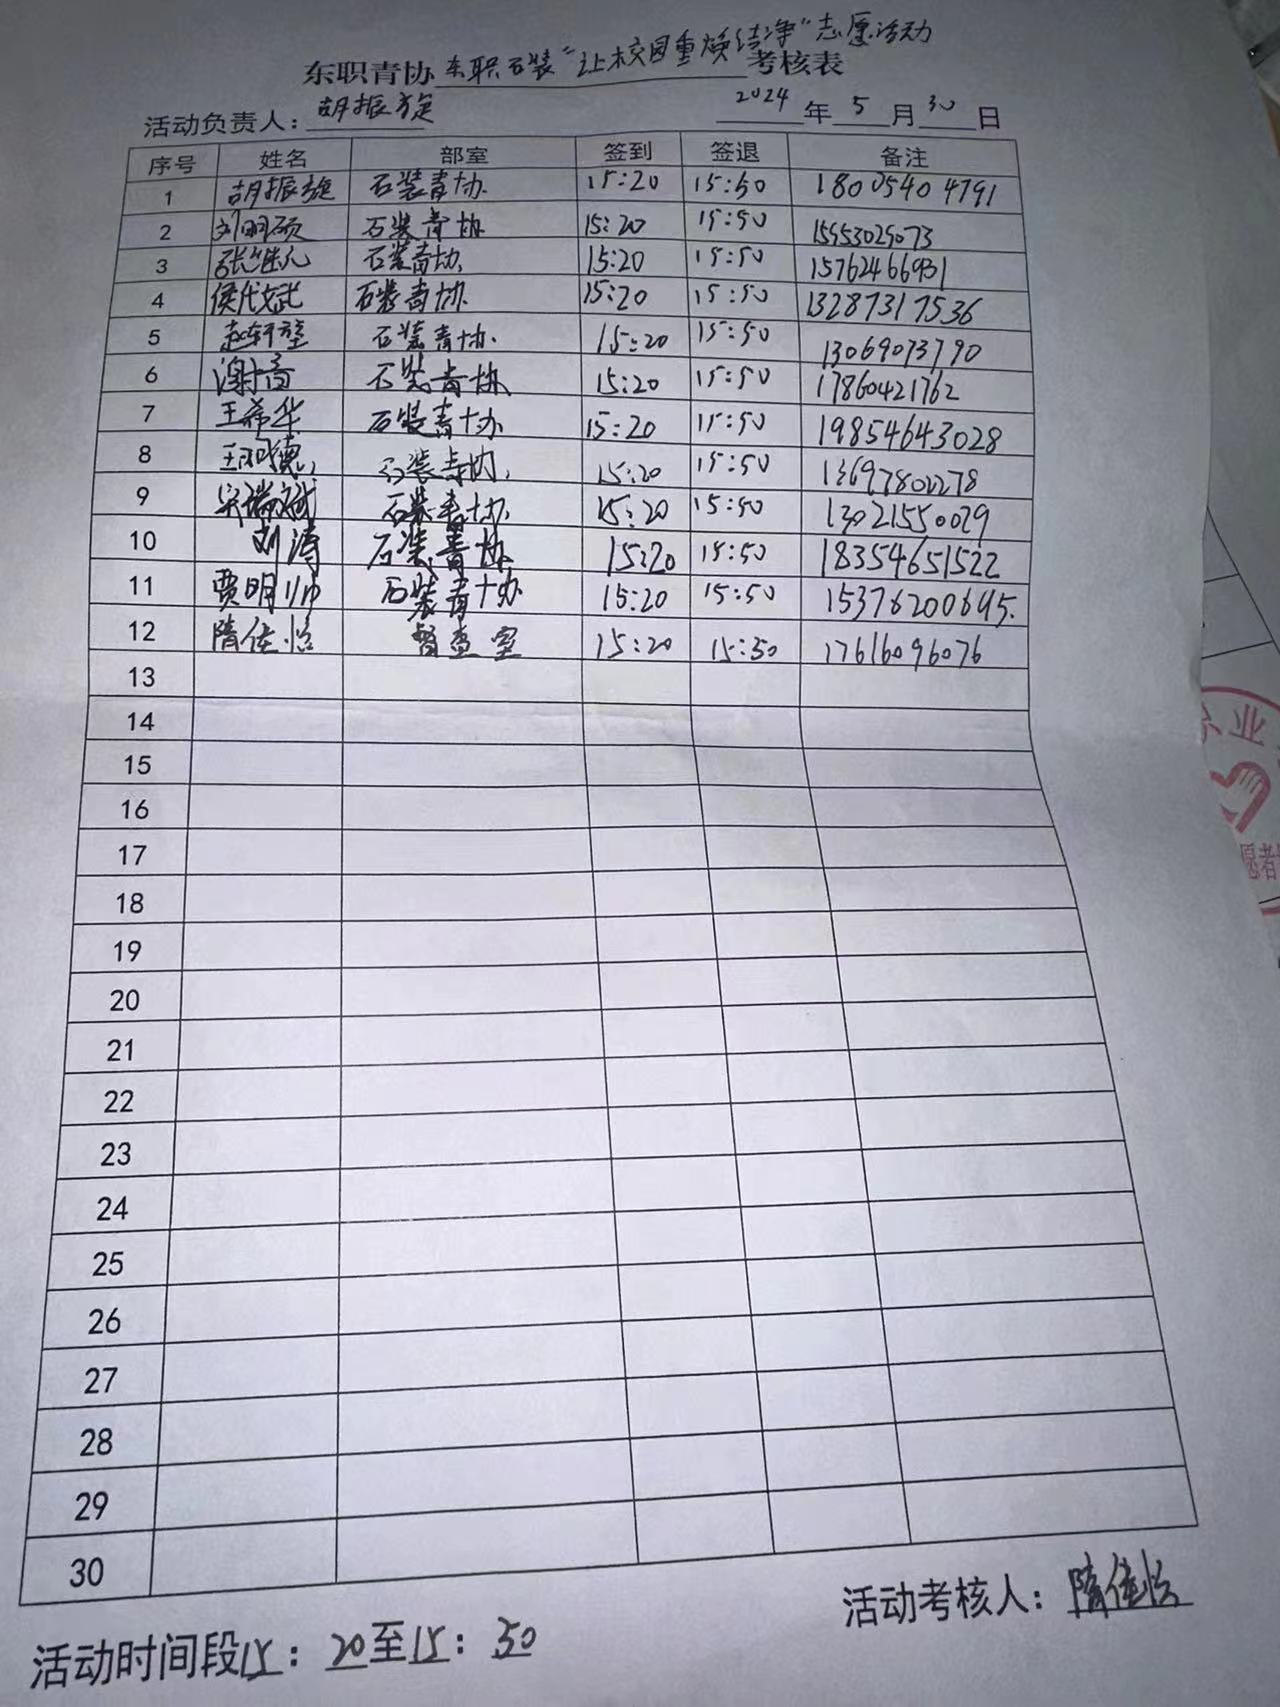 东职青协 东职石装"让校园重焕洁净"志愿活动 考核表
活动负责人：胡振旋 2024 年 5 月 30 日
序号 姓名 部室 签到 签退 备注
1 胡振旋 石装青协 15:20 15:50 18005404791
2 刘明硕 石装青协 15:20 15:50 15953029073
3 张继元 石装青协 15:20 15:50 15762466931
4 侯代文武 石装青协 15:20 15:50 13287317536
5 赵轩莹 石装青协 15:20 15:50 13069073790
6 石装青协 15:20 15:50 17860421762
7 王希华 石装青协 15:20 15:50 19854643028
8 石装青协 15:20 15:50 13697802278
9 宋瑞斌 石装青协 15:20 15:50 13021550029
10 刘涛 石装青协 15:20 15:50 18354651522
11 贾明帅 石装青协 15:20 15:50 15376200695
12 隋佳怡 督查室 15:20 15:50 17616096076
13
14
15
16
17
18
19
20
21
22
23
24
25
26
27
28
29
30
活动考核人：隋佳怡
活动时间段15：20至15：50
业
愿者